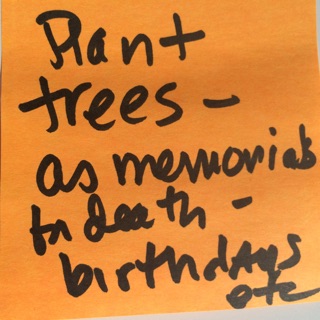 Plant
trees -
as memorials
to death -
birthdays
etc